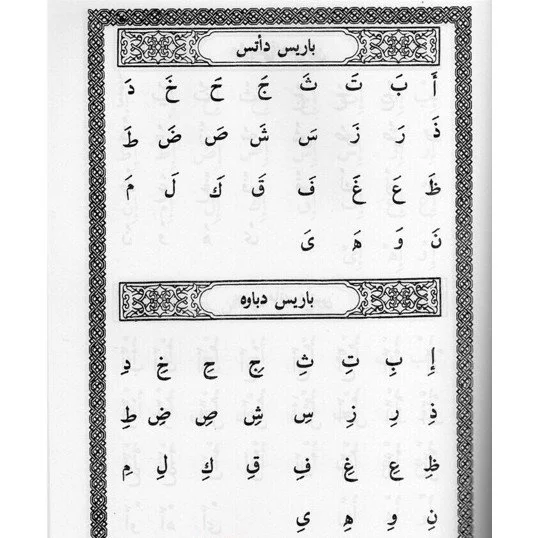 باريس دأتس
أَ بَ تَ ثَ جَ حَ خَ دَ
ذَ رَ زَ سَ شَ صَ ضَ طَ
ظَ عَ غَ فَ قَ كَ لَ مَ
نَ وَ هَ ىَ
باريس دباوه
إِ بِ تِ ثِ جِ حِ خِ دِ
ذِ رِ زِ سِ شِ صِ ضِ طِ
ظِ عِ غِ فِ قِ كِ لِ مِ
نِ وِ هِ ىِ